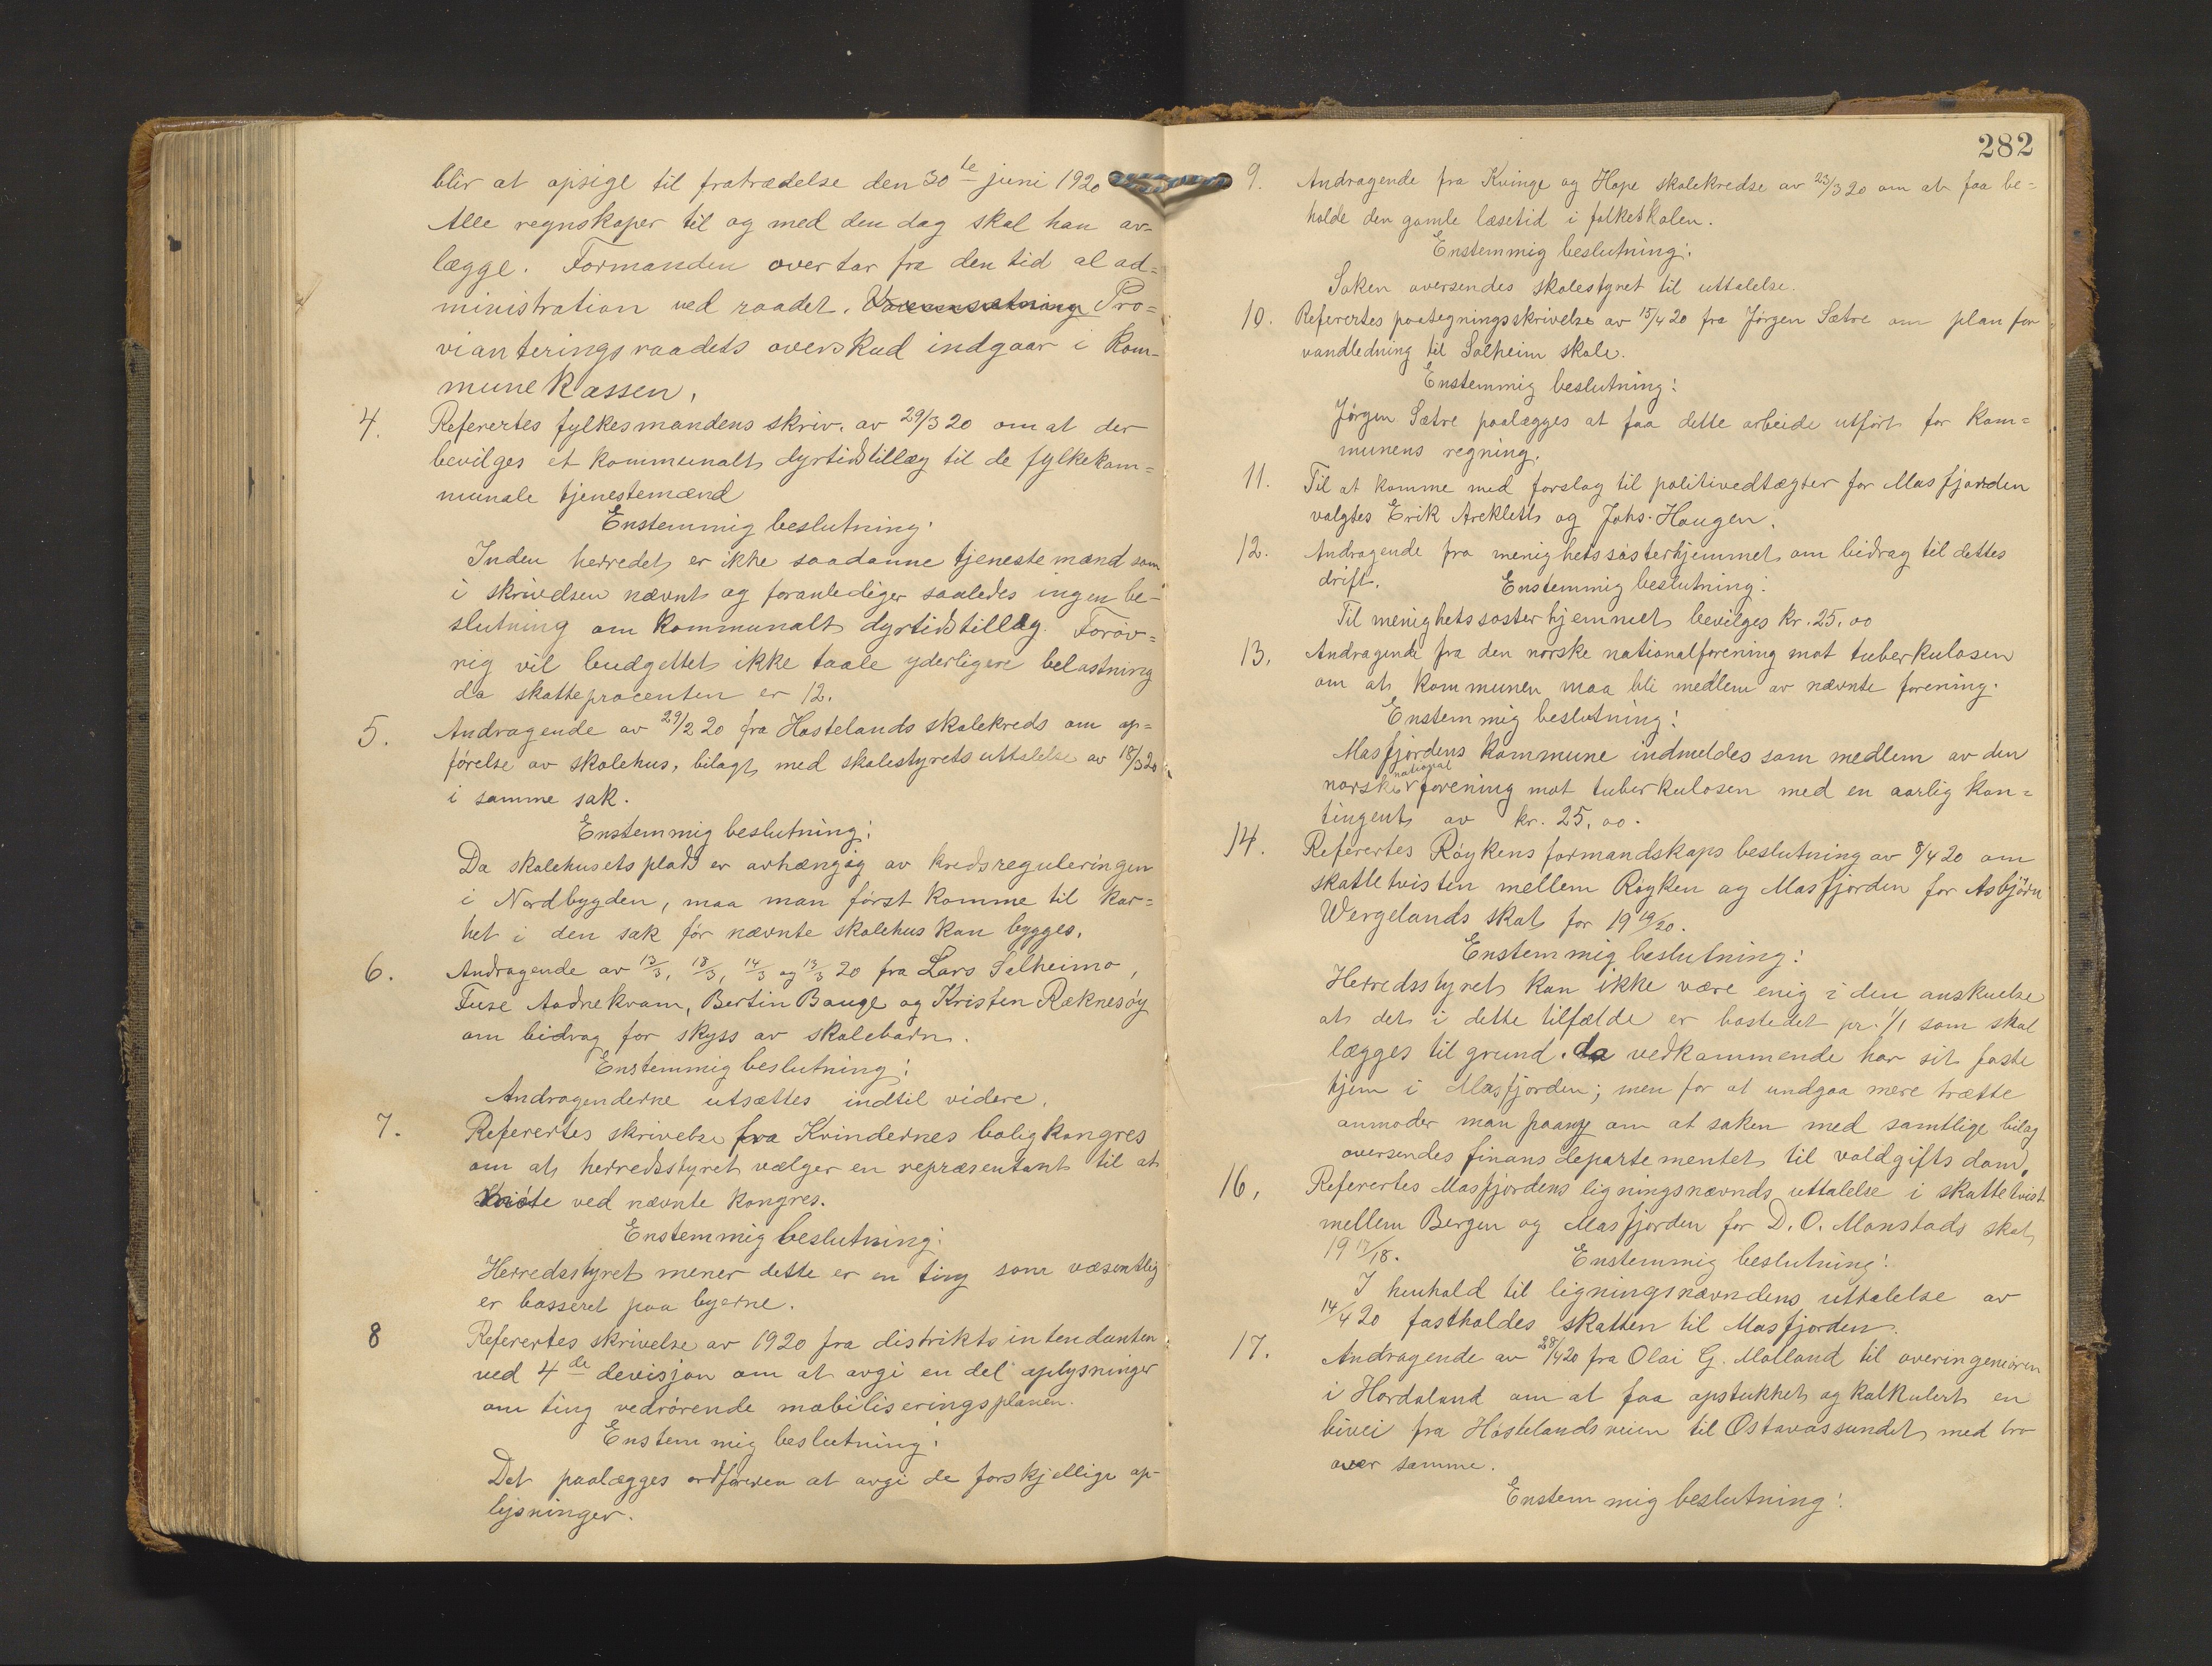 blir at opsige til fratrædelse den 30te juni 1920
Alle regnskaper til og med den dag skal han av-
lægge. Formanden overtar fra den tid al ad=
ministration ved raadet. Pro=
vianteringsraadets overskud indgaar i kom-
munekassen.
4. Referertes fylkesmandens skriv. av 29/3 20 om at der
bevilges et kommunalt dyrtidstillæg til de fylkekom=
munale tjenestemænd
Enstemmig beslutning:
Inden herredet er ikke saadanne tjenestemænd som
i skrivelsen nævnt og foranlediger saaledes ingen be-
slutning om kommunalt dyrtidstillæg. Forøv=
rig vil budgettet ikke taale yderligere belastning
da skatteprocenten er 12.
5. Andragende av 29/2 20 fra Hostelands skolekreds om op=
førelse av skolehus, bilagt med skolestyrets uttalelse av 18/3 20
i samme sak.
Enstemmig beslutning:
Da skolehusets plads er avhængig av kredsreguleringen
i Nordbygden, maa man først komme til kar=
het i den sak før nævnte skolehus kan bygges.
6. Andragende av 13/3, 18/3, 14/3 og 13/3 20 fra Lars Solheimo,
Tuse Aadnekvam, Bertin Bauge og Kristen Ræknesøy
om bidrag for skyss av skolebarn.
Enstemmig beslutning:
Andragenderne utsættes indtil videre.
7. Referertes skrivelse fra Kvindernes boligkongres
om at herredsstyret vælger en repræsentant til at
møte ved nævnte kongres.
Enstemmig beslutning:
Herredsstyret mener dette er en ting som væsentlig
er basseret paa byerne.
8 Referertes skrivelse av 1920 fra distriktsintendanten
ved 4de devisjon om at avgi en del oplysninger
om ting vedrørende mobiliseringsplanen.
Enstemmig beslutning:
Det paalægges ordføreren at avgi de forskjellige op-
lysninger.
282
9. Andragende fra Kvinge og Hope skolekredse av 23/3 20 om at faa be=
holde den gamle læsetid i folkeskolen.
Enstemmig beslutning:
Saken oversendes skolestyret til uttalelse.
10. Referertes paategningsskrivelse av 15/4 20 fra Jörgen Sætre om plan for
vandledning til Solheim skole.
Enstemmig beslutning:
Jörgen Sætre paalægges at faa dette arbeide utført for kom=
munens regning.
11. Til at komme med forslag til politivedtægter for Masfjorden
valgtes Erik Arekletth og Johs. Haugen.
12. Andragende fra menighetssøsterhjemmet om bidrag til dettes
drift. Enstemmig beslutning:
Til menighetssøsterhjemmet bevilges kr. 25.00
13. Andragende fra den norske nationalforening mot tuberkulosen
om at kommunen maa bli medlem av nævnte forening.
Enstemmig beslutning:
Masfjordens kommune indmeldes som medlem av den
norske nationalforening mot tuberkulosen med en aarlig kon=
tingent av kr. 25.00.
14. Referertes Röykens formandskaps beslutning av 8/4 20 om
skattetvisten mellem Röyken og Masfjorden for Asbjörn
Wergelands skat for 1919/20.
Enstemmig beslutning:
Herredsstyret kan ikke være enig i den anskuelse
at det i dette tilfælde er bostedet pr. 1/1 som skal
lægges til grund, da vedkommende har sit faste
hjem i Masfjorden; men for at undgaa mere trætte
anmoder man paany om at saken med samtlige bilag
oversendes finansdepartementet til voldgiftsdom.
16. Referertes Masfjordens ligningsnævnds uttalelse i skattetvist
mellem Bergen og Masfjorden for D. O. Monstads skat
1917/18. Enstemmig beslutning:
I henhold til ligningsnævndens uttalelse av
14/4 20 fastholdes skatten til Masfjorden.
17. Andragende av 28/4 20 fra Olai G. Molland til overingeniøren
i Hordaland om at faa opstukket og kalkulert en
bivei fra Høstelandsveien til Ostavassundet med bro
over samme.
Enstemmig beslutning: